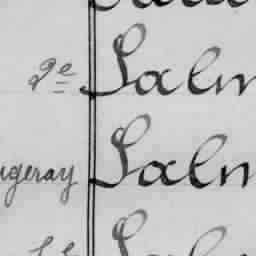 2e Salm
ugeray Salm